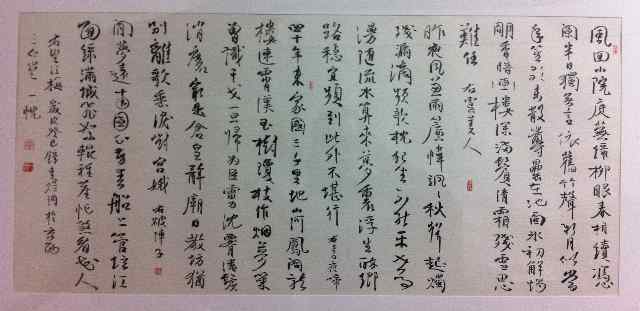 風回小院庭蕪綠柳眼春相續憑
闌半日獨無言依舊竹聲新月似當
年笙歌未散尊罍在池面冰初解燭
明香暗畫樓深滿鬢清霜殘雪思
難任 右虞美人
昨夜風兼雨簾幃颯颯秋聲起燭
殘漏滴頻欹枕起坐不能平世事
漫隨流水算來夢裏浮生醉鄉
路穩宜頻到此外不堪行 右烏夜啼
四十年來家國三千里地山河鳳閣龍
樓連霄漢玉樹瓊枝作烟蘿幾
曾識干戈一旦歸為臣虜沈腰潘鬢
消磨最是倉皇辭廟日教坊猶
別離歌垂淚對宮娥 右破陣子
閒夢遠南國正芳春船上管絃江
面綠滿城飛絮輥輕塵忙殺看花人
右望江梅 歲次癸巳 錄李煜詞於